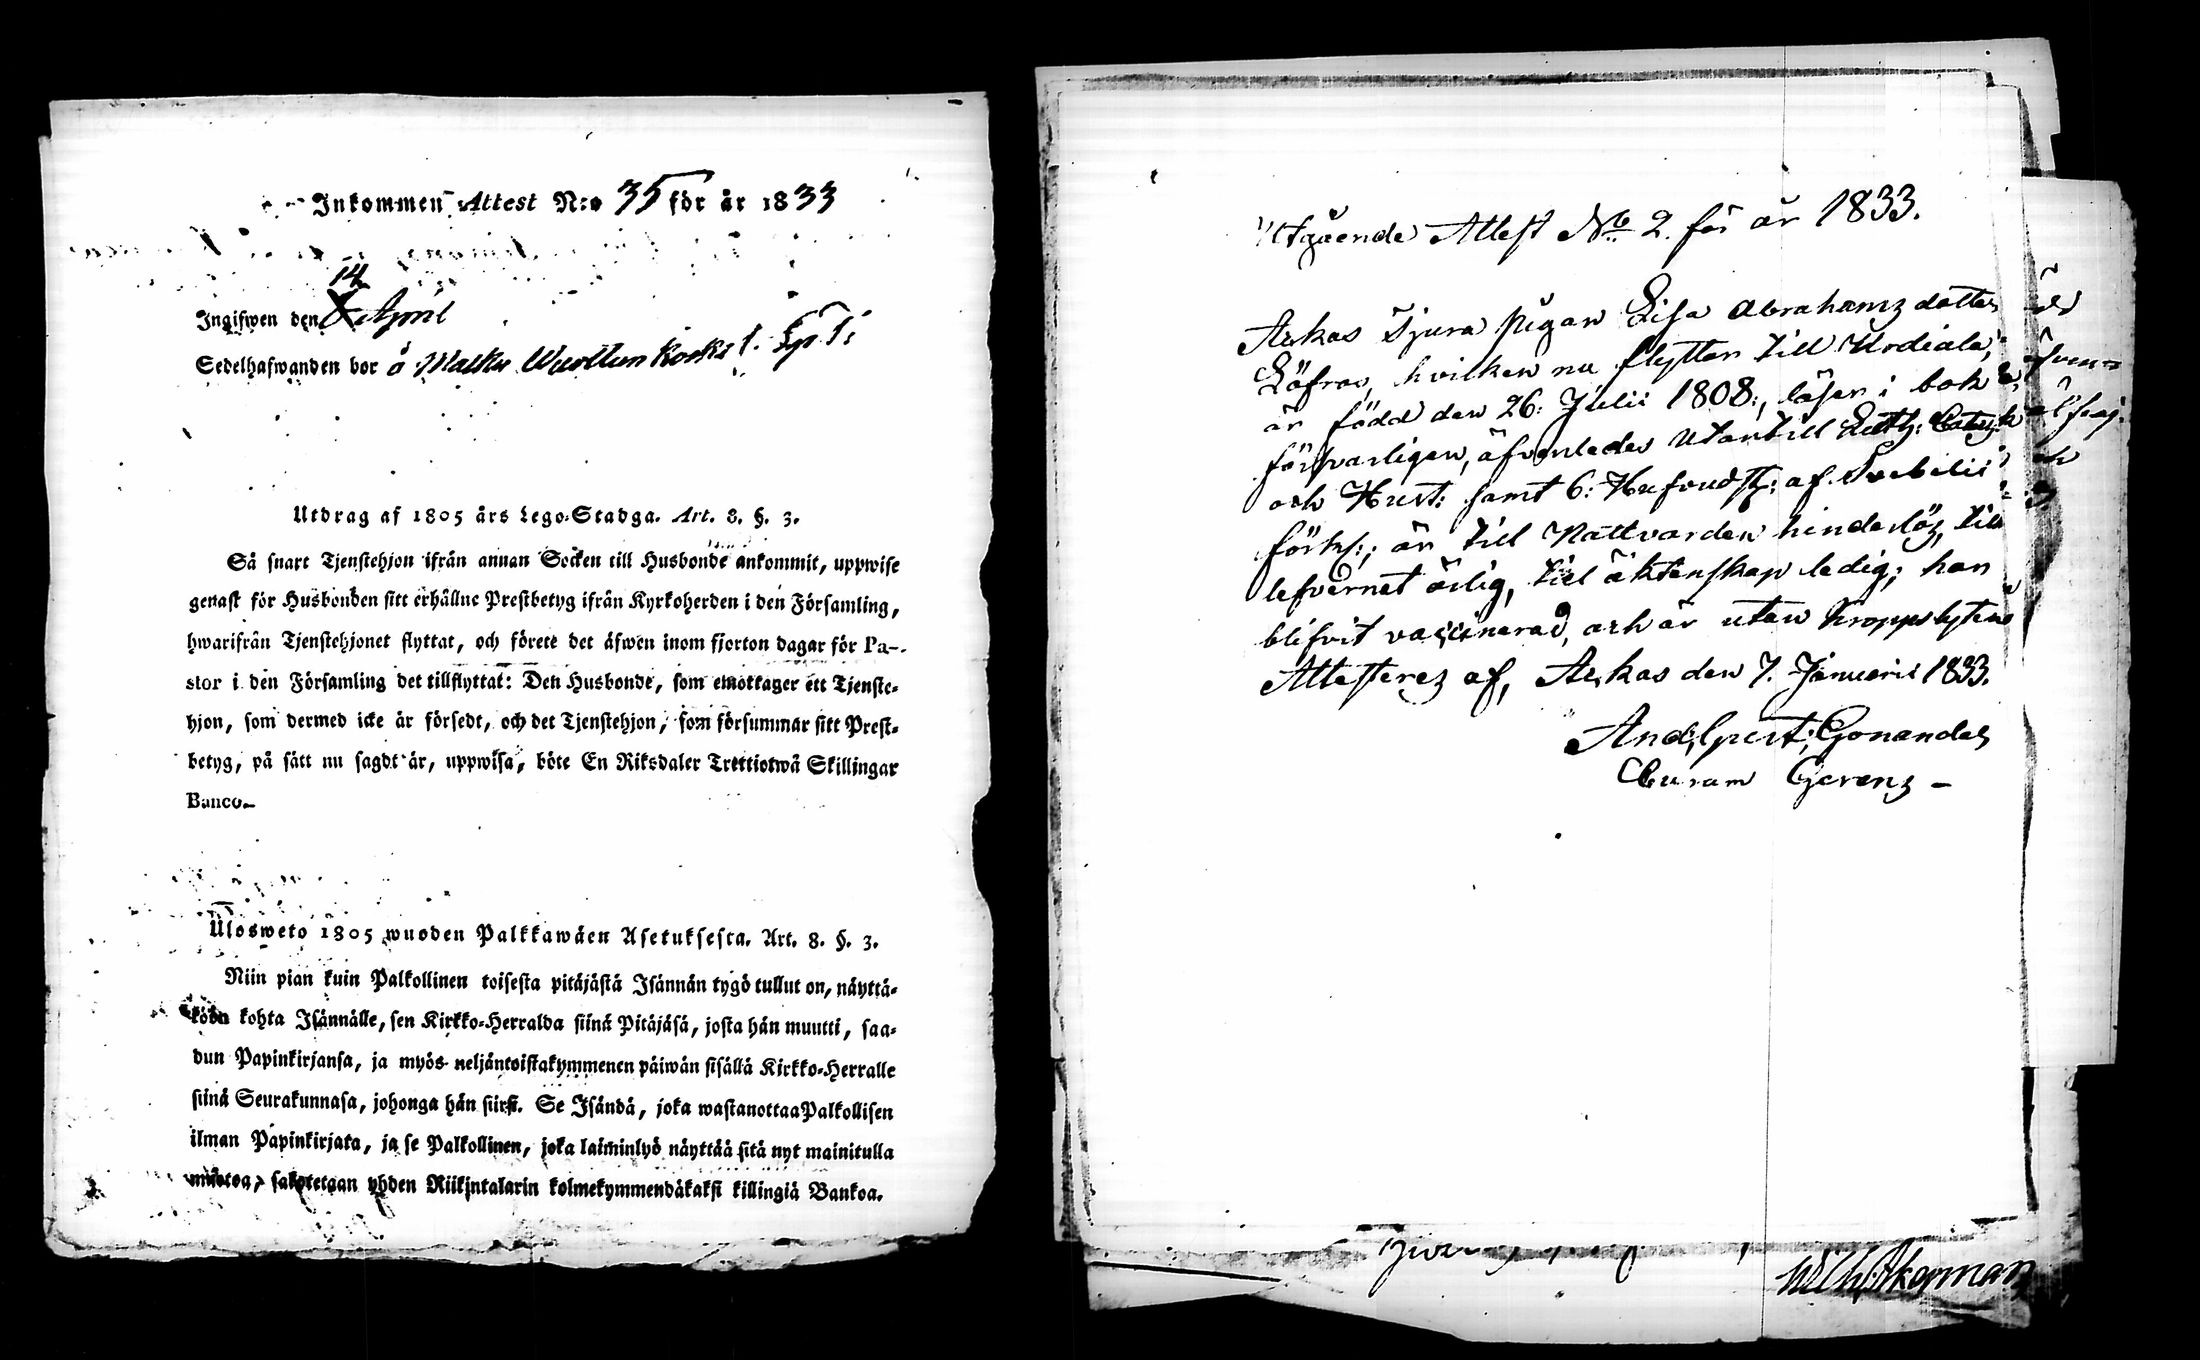 Inkommen Attest N:o 35 för år 1833
14
Ingifwen den 8 April
Sedelhafwanden bor å
Utdrag af 1805 års Lego-Stadga. Art. 8. §. 3.
Så snart Tjenstehjon ifrån annan Socken till Husbonde ankommit, uppwise
genast för Husbonden sitt erhållne Prestbetyg ifrån Kyrkoherden i den Församling,
hwarifrån Tjenstehjonet flyttat, och förete det äfwen inom fjorton dagar för Pa-
stor i den Församling det tillflyttat: Den Husbonde, som emottager ett Tjenste-
hjon, som dermed icke är försedt, och det Tjenstehjon, som försummar sitt Prest-
betyg, på sätt nu sagdt är, uppwisa, böte En Riksdaler Trettiotwå Skillingar
Banco.
Ulosweto 1805 wuoden Palkkawäen Asetuksesta. Art. 8. §. 3.
Niin pian kuin Palkollinen toisesta pitäjästä Isännän tygö tullut on, näyttä-
köön kohta Isännälle, sen Kirkko-Herralda siinä Pitäjäsä, josta hän muutti, saa-
dun Papinkirjansa, ja myös neljäntoistakymmenen päiwän sisällä Kirkko-Herralle
siinä Seurakunnasa, johonga hän siirsi. Se Isändä, joka wastanottaa Palkollisen
ilman Papinkirjata, ja se Palkollinen, joka laiminlyö näyttää sitä nyt mainitulla
muotoa, sakotetaan yhden Riikintalarin kolmekymmendäkaksi killingiä Bankoa.
Utgående Attest No 2. för år 1833.
Arkas Tjura pigan Lisa Abrahamz dotter
Löfroo, hvilken nu flyttar till Urdiala,
är född den 26: Julii 1808:, läser i bok
försvarligen, äfvenledes utantill Luth: Catech
och Hust: samt 6: Hufvudst: af Svebelii
förkl:; är till Nattvarden hinderlöz, till
lefvernet ärlig, till äktenskap ledig; har
blifvit vaccinerad, och är utan kroppslyten
Attesterez af, Arkas den 7. Januarii 1833.
And: Gonander
Curam Gerenz -
Wilh: Åkerman